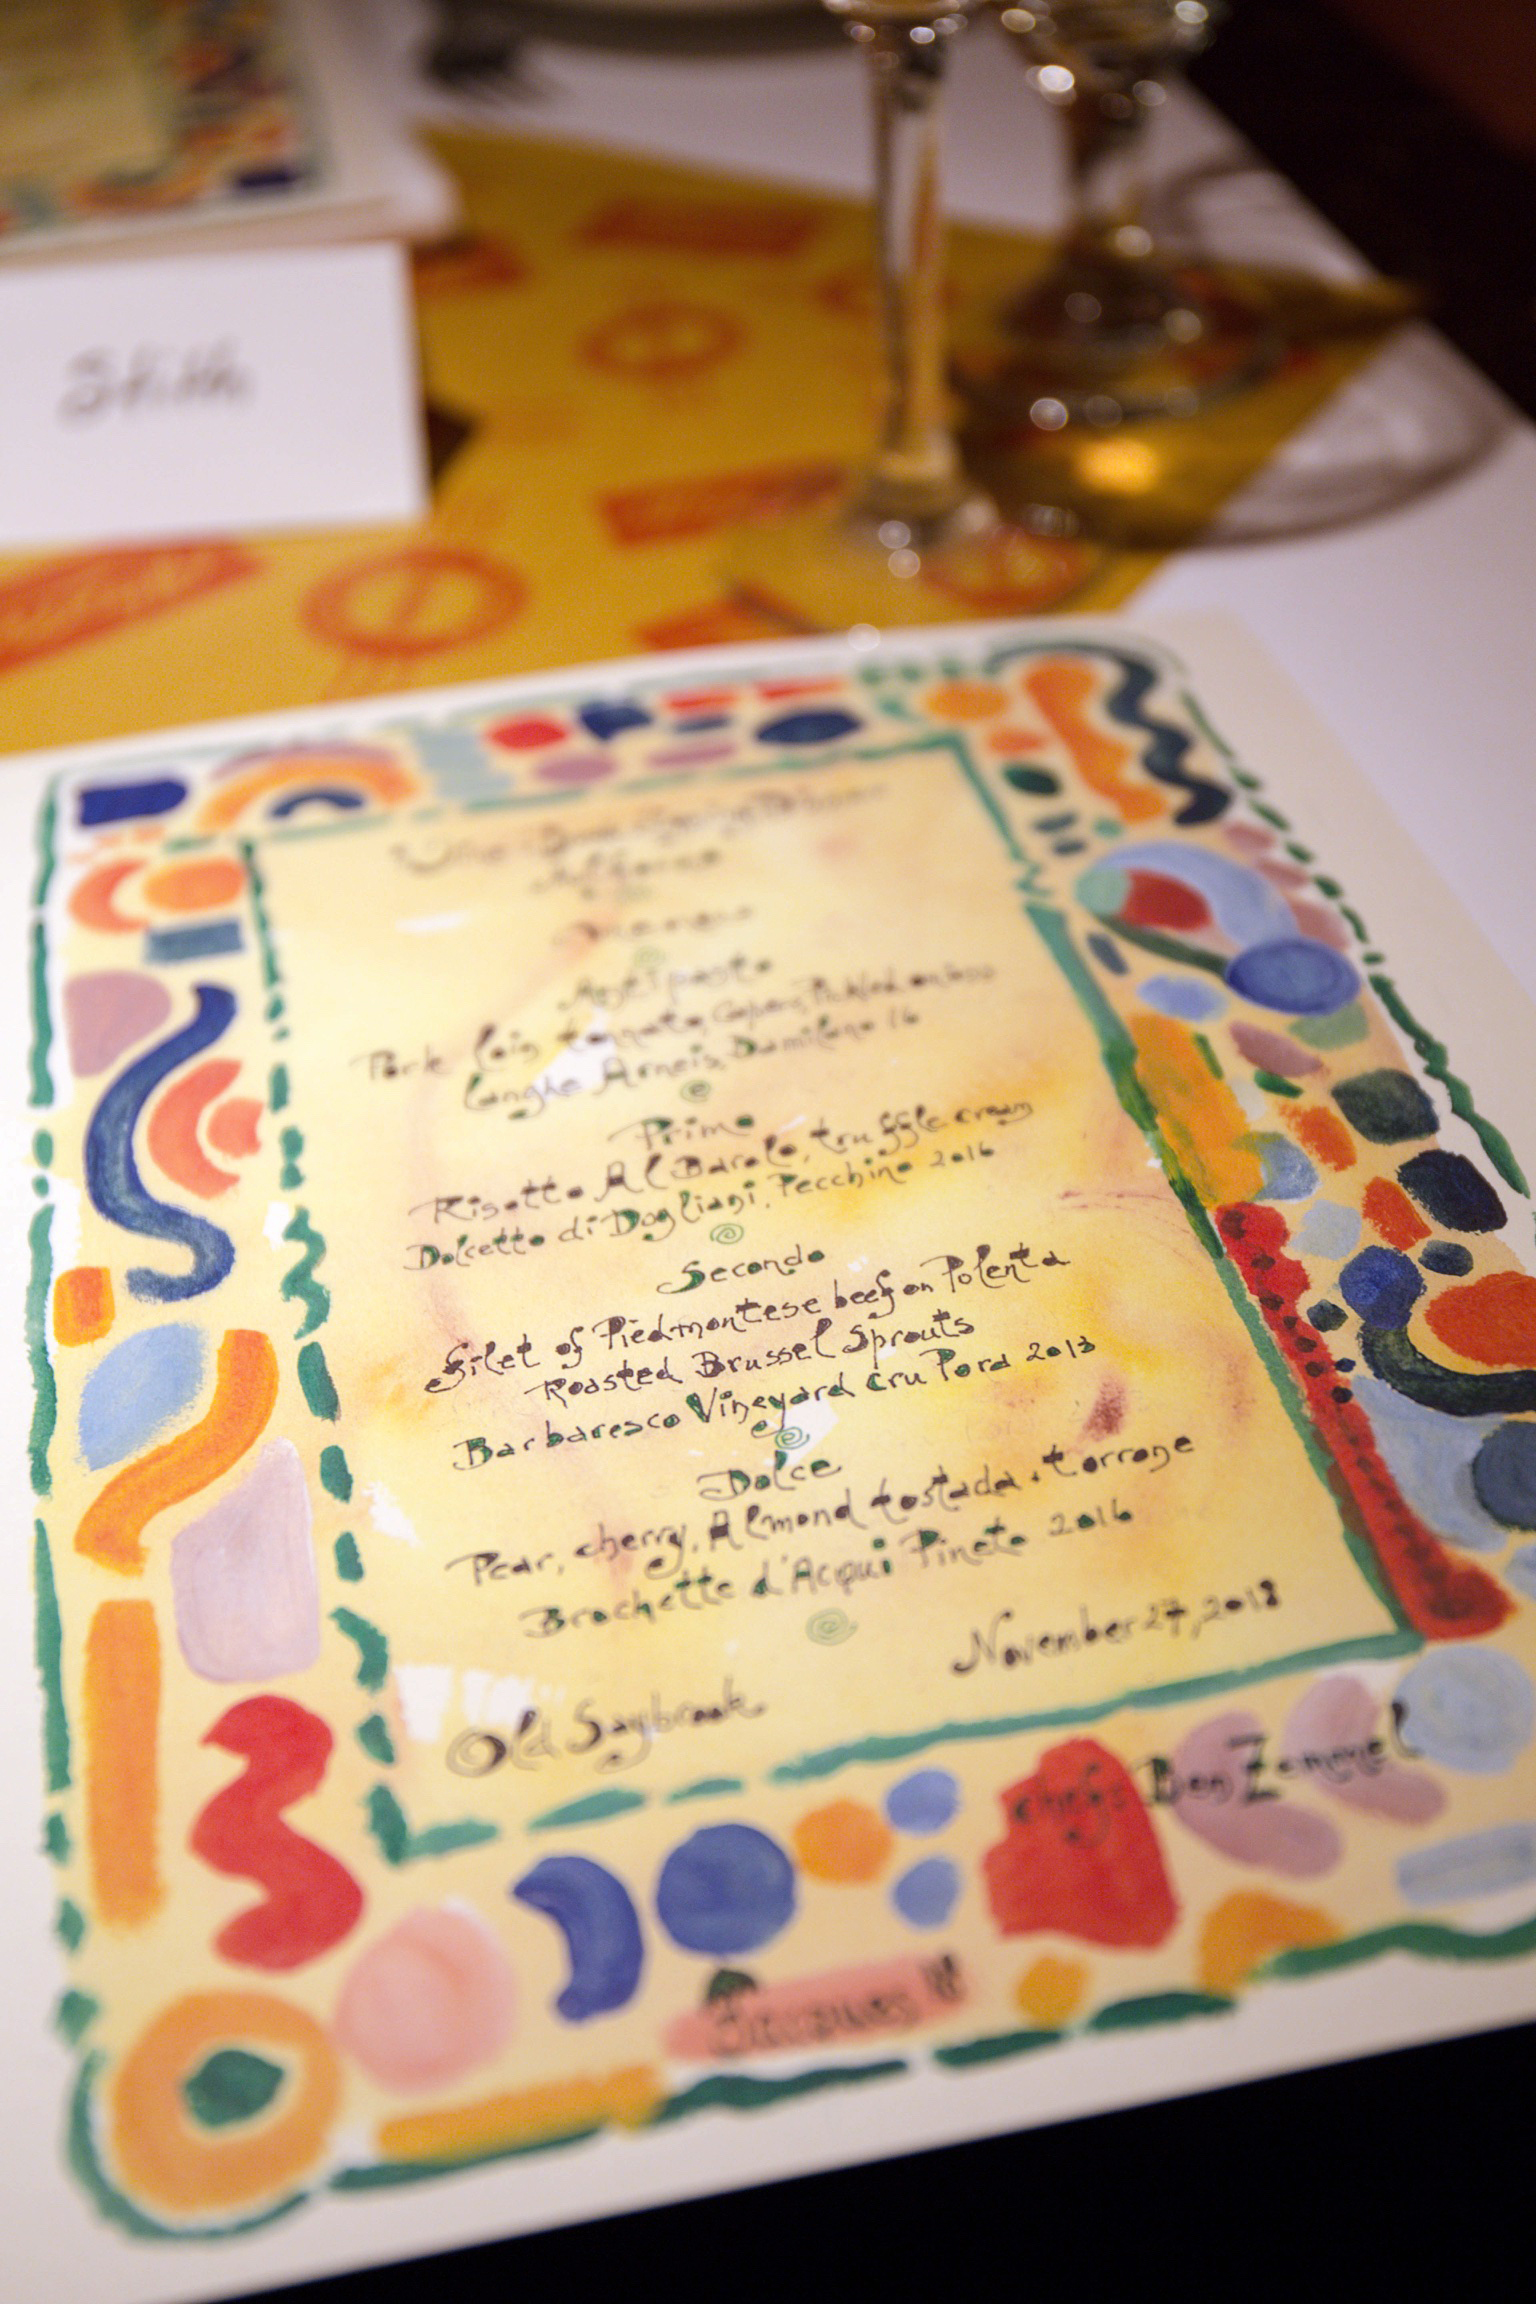 Stith
Menu
Antipasto
Pork loin tonnato, Capers, Pickled onions
Langhe Arneis, Damilano 16
Primo
Risotto Al Barolo, truffle cream
Dolcetto di Dogliani, Pecchino 2016
Secondo
filet of Piedmontese beef on Polenta
Roasted Brussel Sprouts
Barbaresco Vineyard cru Pora 2013
Dolce
Pear, cherry, Almond tostada + torrone
Brachette d'Acqui Pineto 2016
November 27, 2018
Old Saybrook
chefs Ben Zemmel
Jacques